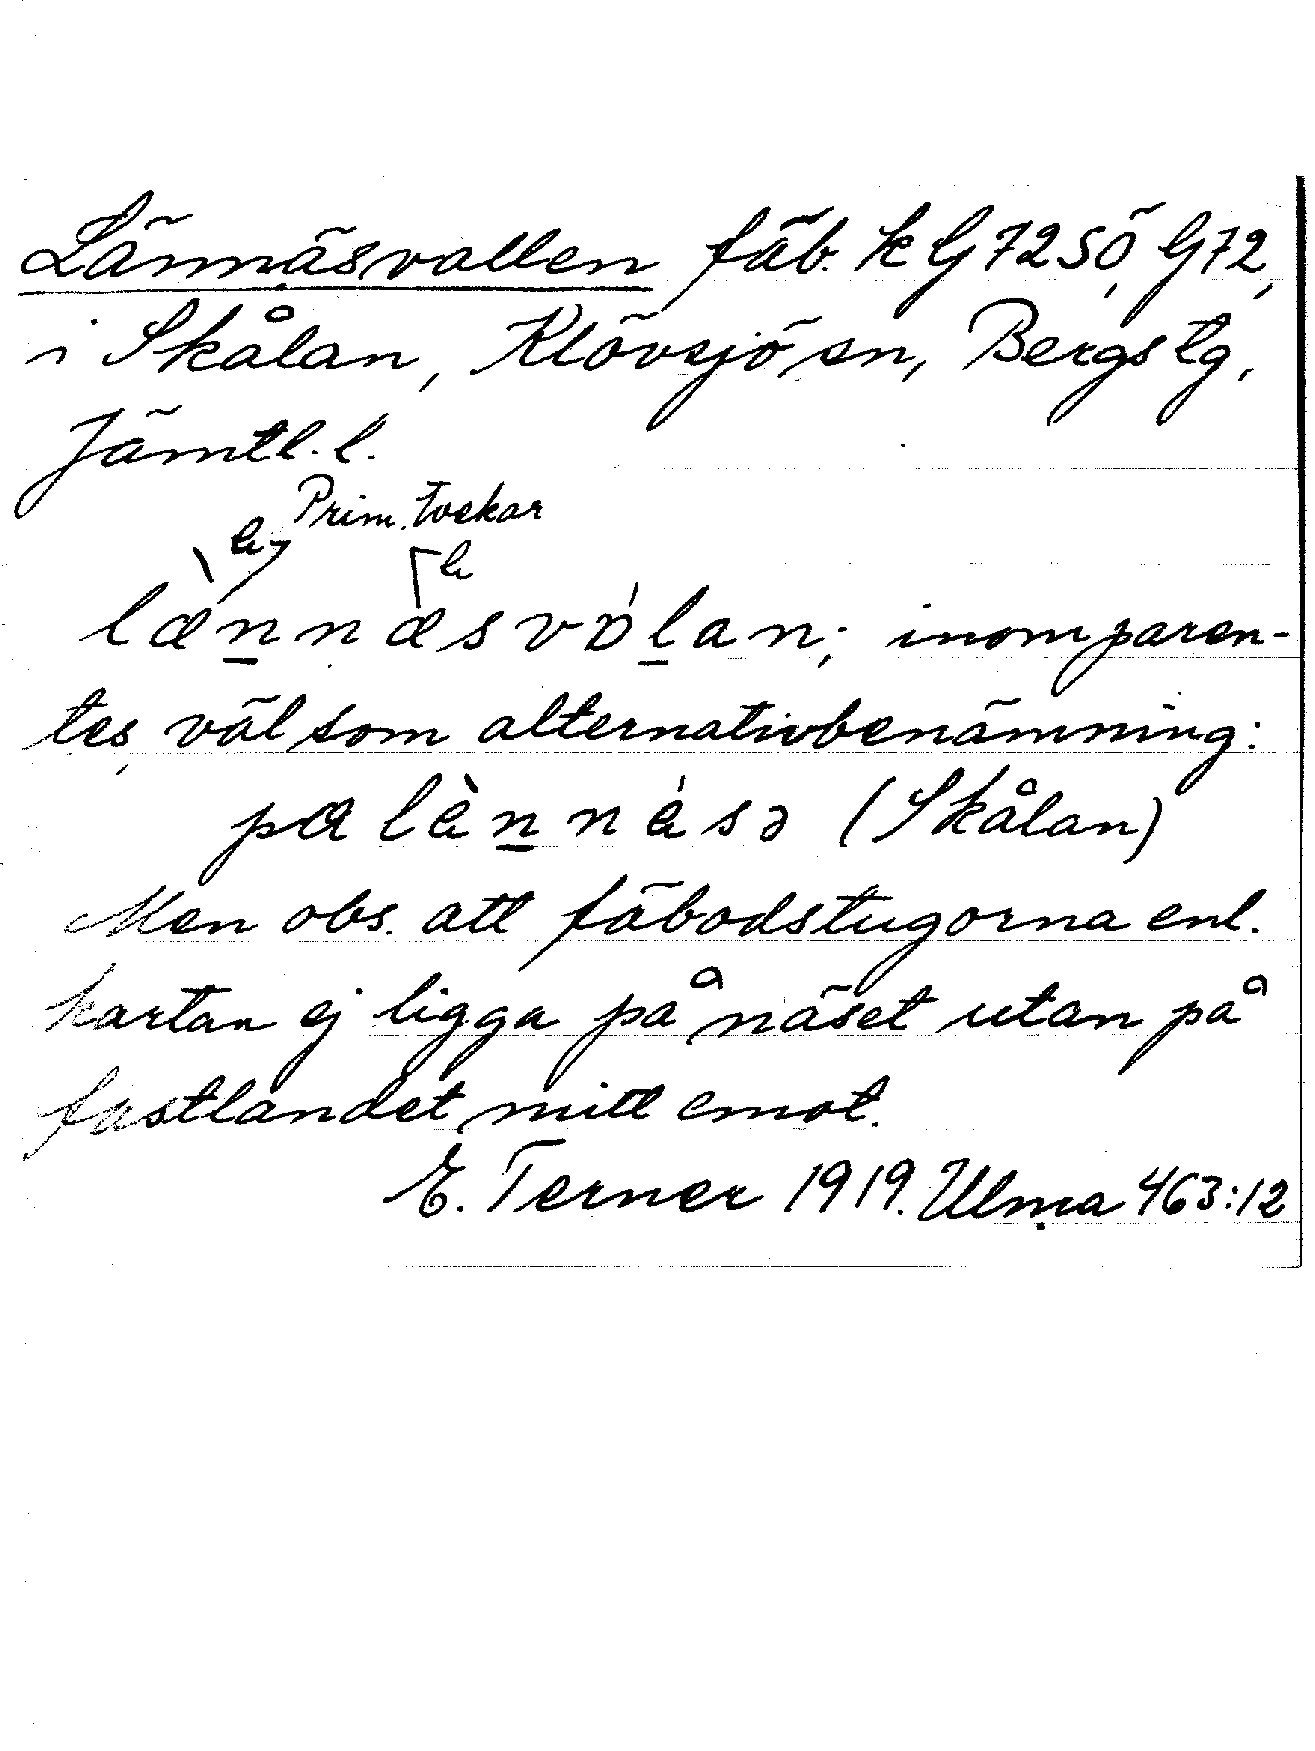 Lännäsvallen fäb. k G72SÖ, G72,
i Skålan, Klövsjö sn, Bergs tg,
Jämtl. l.
Prim. tvekar
lænnæsvòlan; inom paren-
tes, väl som alternativbenämning:
pa lènnésə (Skålan)
Men obs. att fäbodstugorna enl.
kartan ej ligga på näset utan på
fastlandet mitt emot.
E. Terner 1919. Ulma 463:12